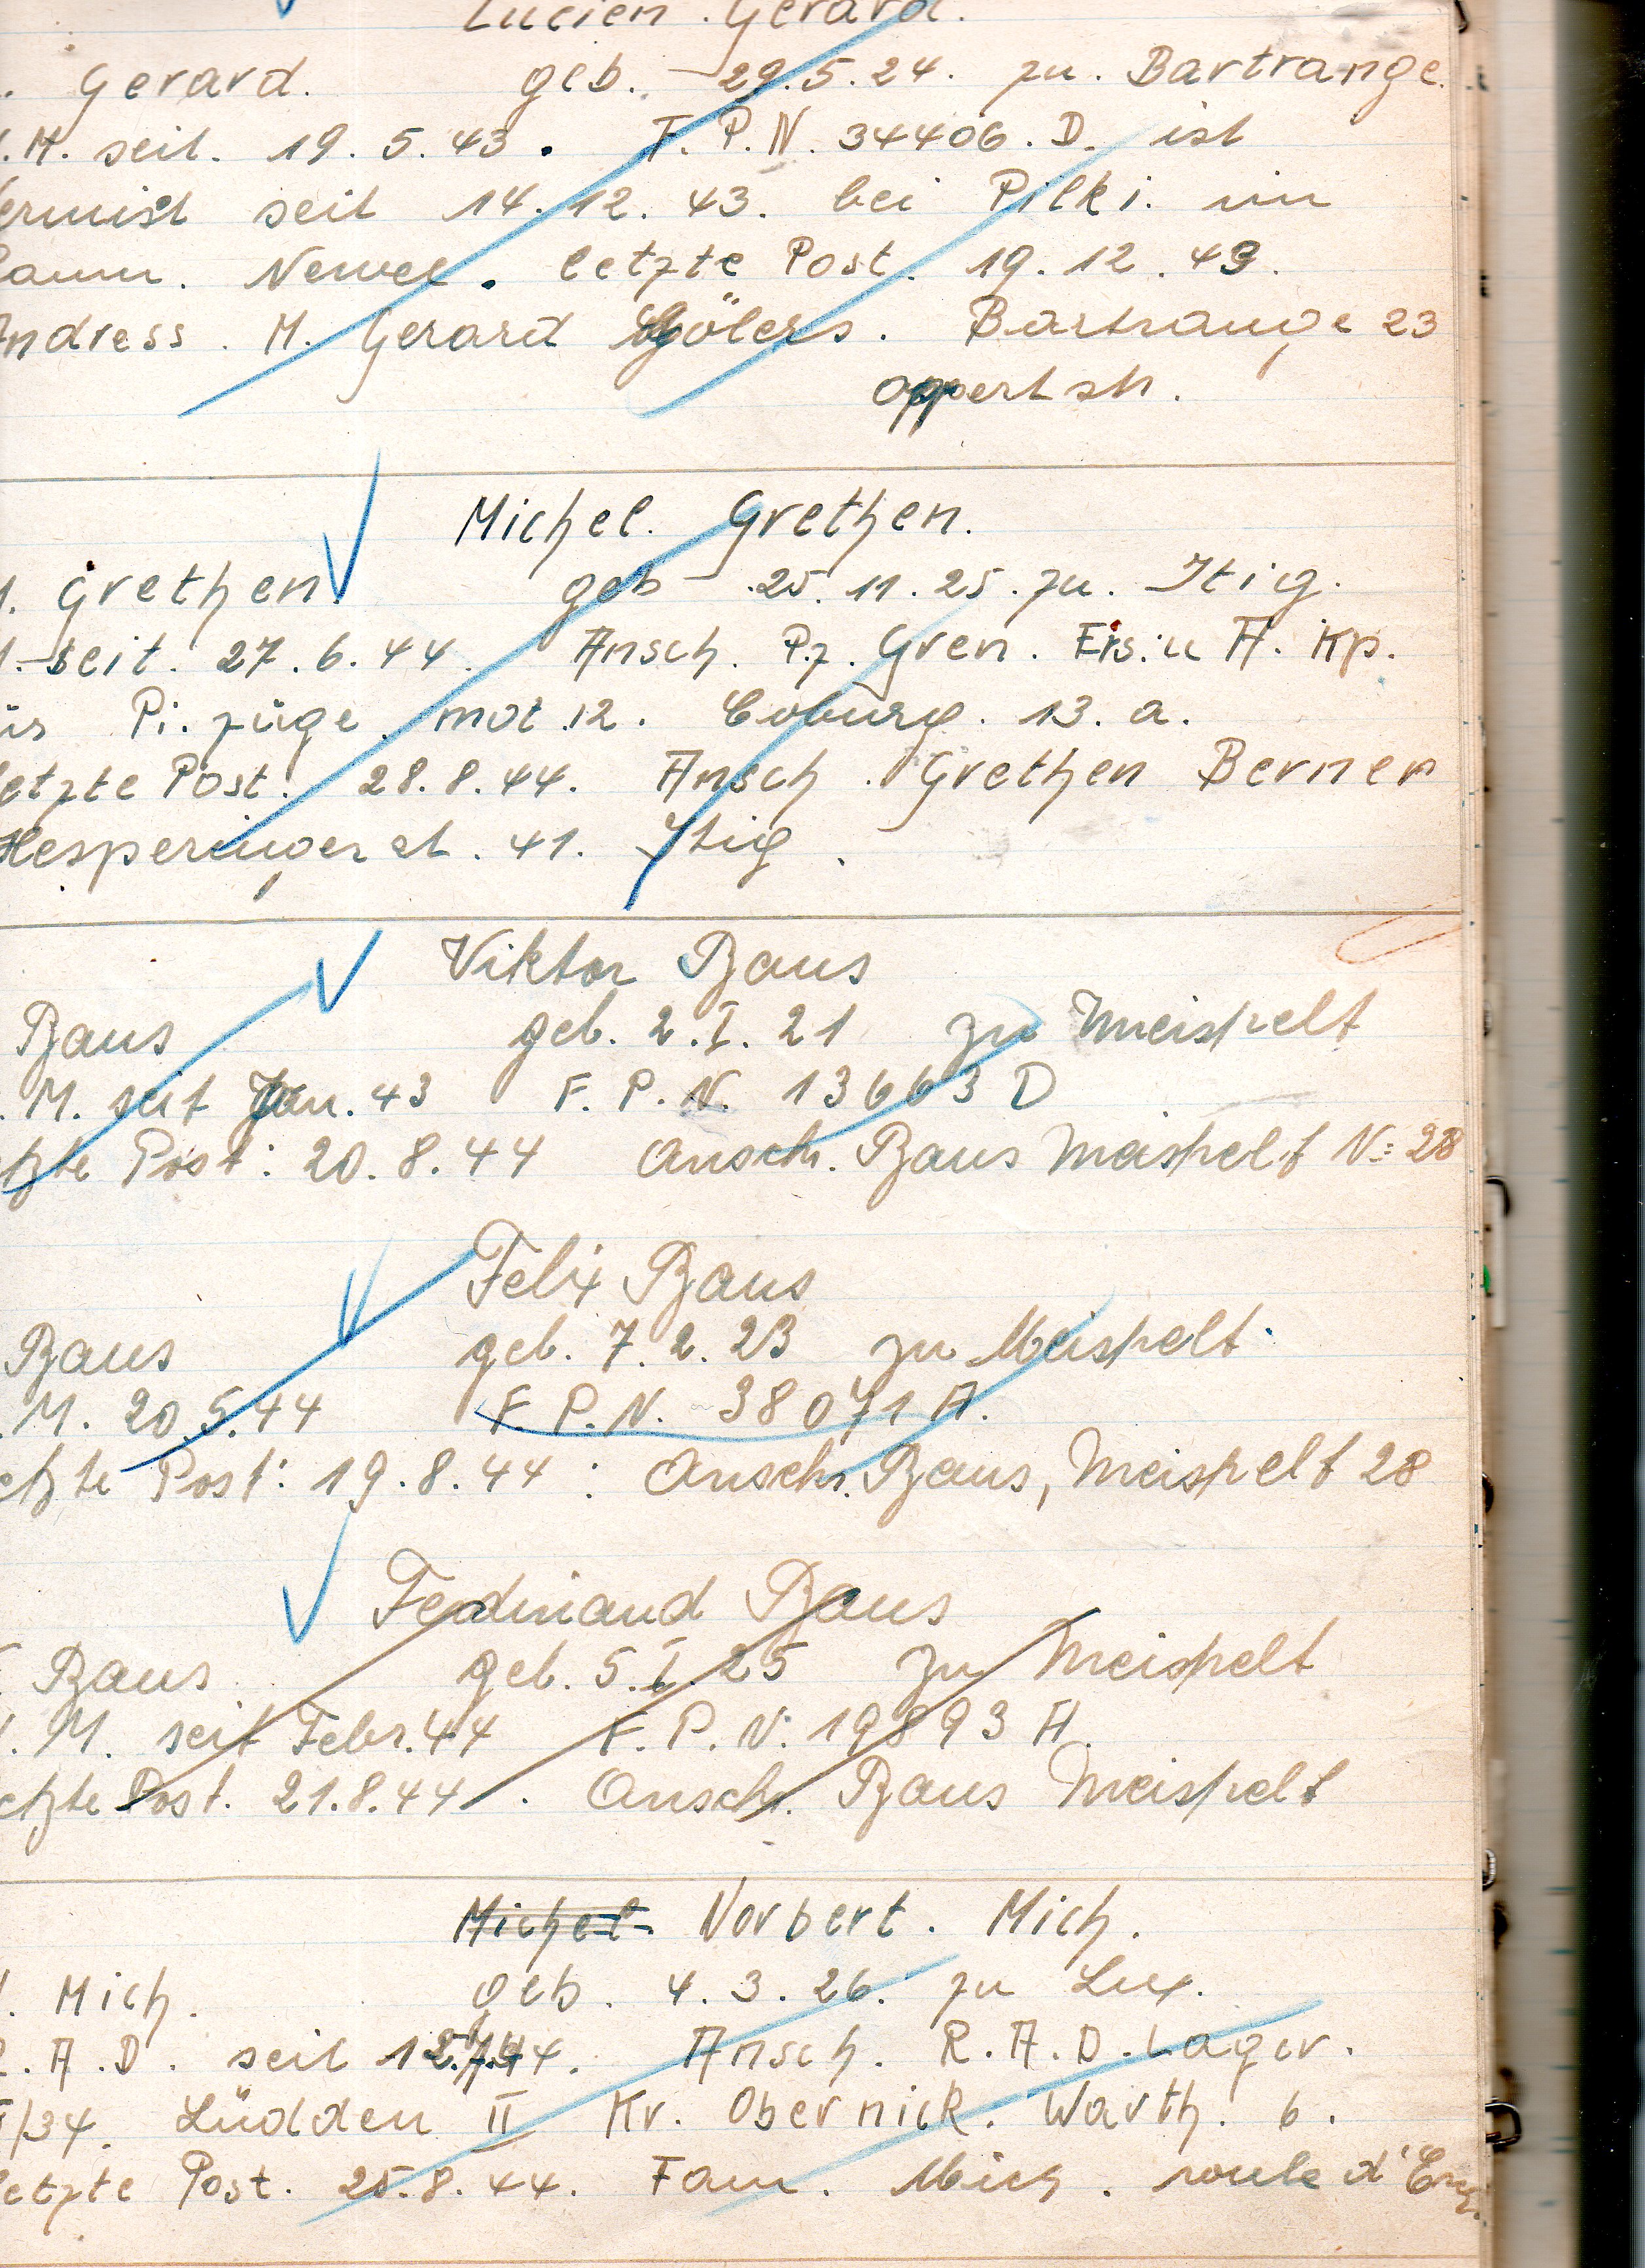 Lucien Gerard.
. Gerard. geb. 29.5.24. zu. Bartrange.
.M. seit. 19.5.43. F.P.N. 34406.D. ist
ermist seit 14.12.43. bei Pilki. im
aum. Newel. letzte Post. 19.12.43.
Andress. M. Gerard Bartrange 23
oppert str.
Michel. Grethen.
. Grethen. geb 25.11.25. zu. Itig.
. seit. 27.6.44. Ansch. Pz. Gren. Ers. u A. Kp.
ür Pi. züge. mot. 12. Coburg. 13. a.
etzte Post. 28.8.44. Ansch. Grethen Berner
Hesperinger st. 41. Itig.
Viktor Baus
Baus geb. 2.I.21 zu Meispelt
. M. seit Jan. 43 F.P.N. 13663 D
tzte Post: 20.8.44 Ansch. Baus Meispelt N: 28
Felix Baus
Baus geb. 7.2.23 zu Meispelt.
.M. 20.5.44 F.P.N. 38071 A.
etzte Post: 19.8.44: Ansch. Baus, Meispelt 28
Ferdinand Baus
Baus geb. 5.I.25 zu Meispelt
.M. seit Febr. 44 F.P.N. 19893 A.
etzte Post. 21.8.44. Ansch. Baus Meispelt
Michel Norbert. Mich.
. Mich. geb. 4.3.26. zu Lux.
.A.D. seit Ansch. R.A.D. Lager.
/34. Lüdden II Kr. Obernick. Warth. 6.
etzte Post. 25.8.44. Fam. Mich. route d'